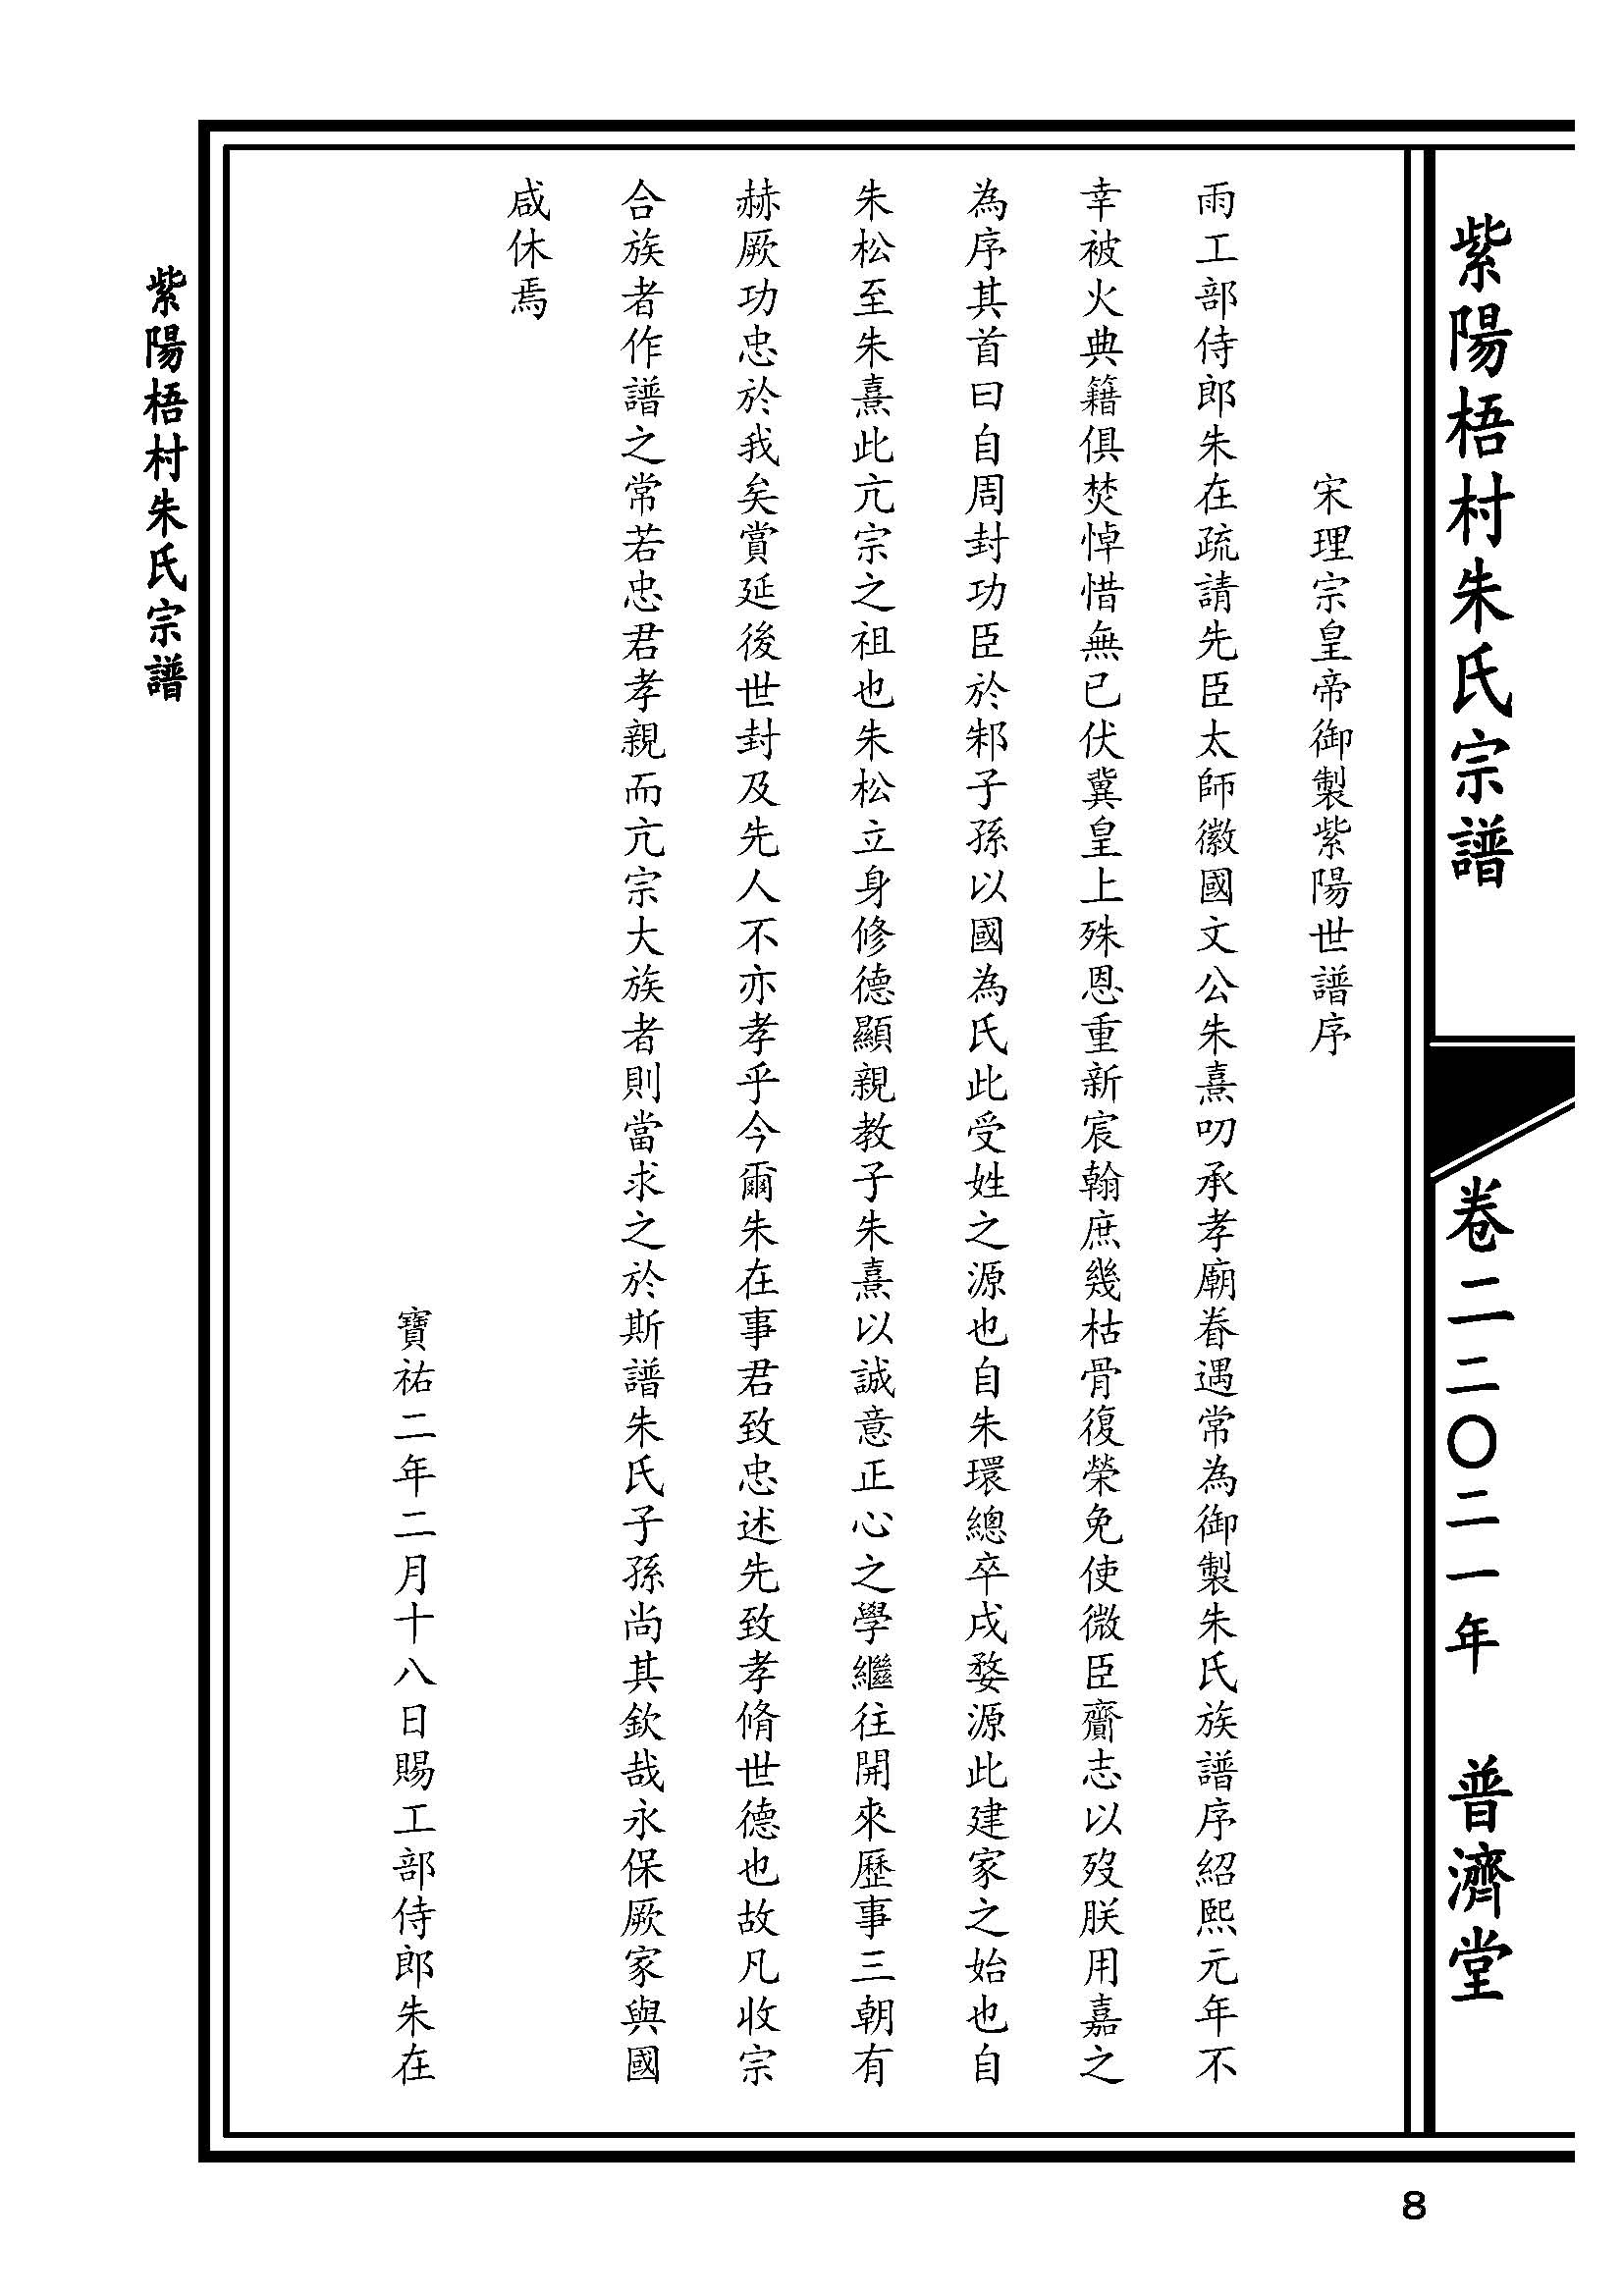 紫陽梧村朱氏宗譜
卷二
二〇二一年
普濟堂
宋理宗皇帝御製紫陽世譜序
雨工部侍郎朱在疏請先臣太師徽國文公朱熹叨承孝廟眷遇常為御製朱氏族譜序紹熙元年不
幸被火典籍俱焚悼惜無已伏冀皇上殊恩重新宸翰庶幾枯骨復榮免使微臣齎志以歿朕用嘉之
為序其首曰自周封功臣於邾子孫以國為氏此受姓之源也自朱環總卒戍婺源此建家之始也自
朱松至朱熹此亢宗之祖也朱松立身修德顯親教子朱熹以誠意正心之學繼往開來歷事三朝有
赫厥功忠於我矣賞延後世封及先人不亦孝乎今爾朱在事君致忠述先致孝脩世德也故凡收宗
合族者作譜之常若忠君孝親而亢宗大族者則當求之於斯譜朱氏子孫尚其欽哉永保厥家與國
咸休焉
寶祐二年二月十八日賜工部侍郎朱在
紫陽梧村朱氏宗譜
8